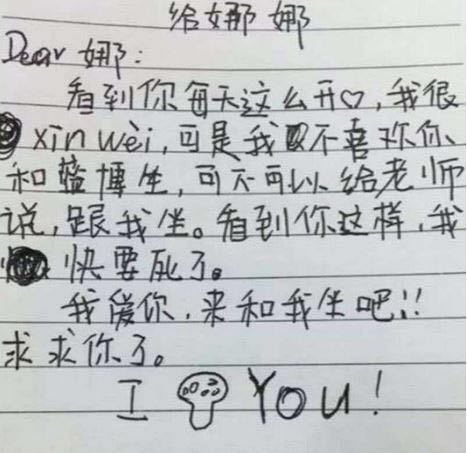 给娜娜
Dear 娜:
看到你每天这么开♡,我很
xin wèi,可是我不喜欢你
和蓝博生,可不可以给老师
说,跟我坐。看到你这样,我
快要死了。
我爱你,来和我坐吧!!
求求你了。
I YOU!